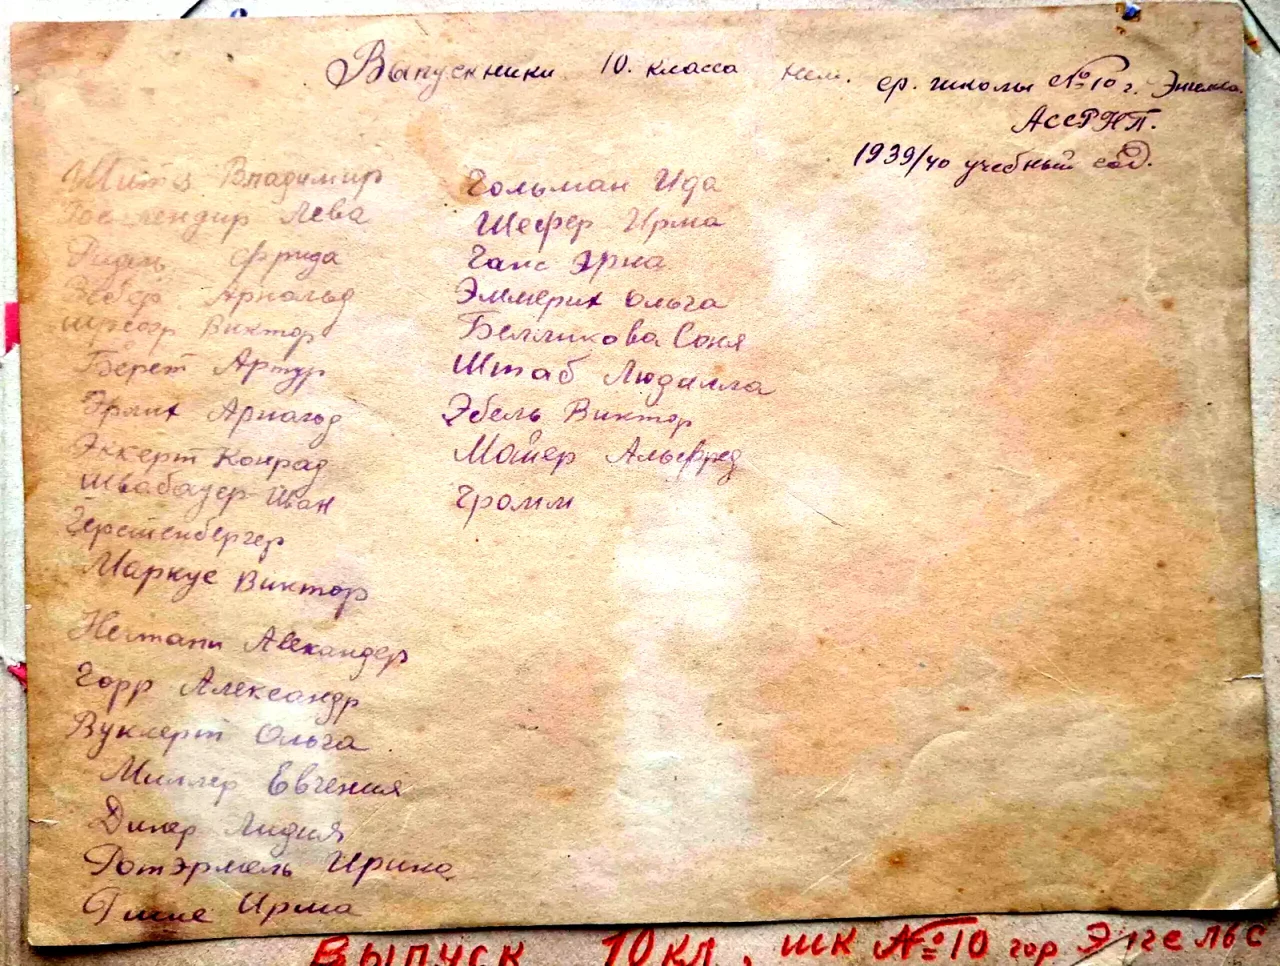 Выпускники 10. класса нем. ср. школы №10 г. Энгельса.
АССРНП.
1939/40 учебный год.
Шмидт Владимир
Лева
Фрида
Вебер Арнольд
Виктор
Берет Артур
Эрлих Арнольд
Эккерт Конрад
Швабауер Иван
Герстенбергер
Маркус Виктор
Нейман Александер
Горр Александр
Вуккерт Ольга
Миллер Евгения
Динер Лидия
Ротэрмель Ирина
Ирма
Гольман Ида
Шефер Ирма
Ганс Эрна
Эммерих Ольга
Белликова Соня
Штаб Людмила
Эбель Виктор
Майер Альфред
Громм
Выпуск 10 кл, шк №10 гор Энгельс